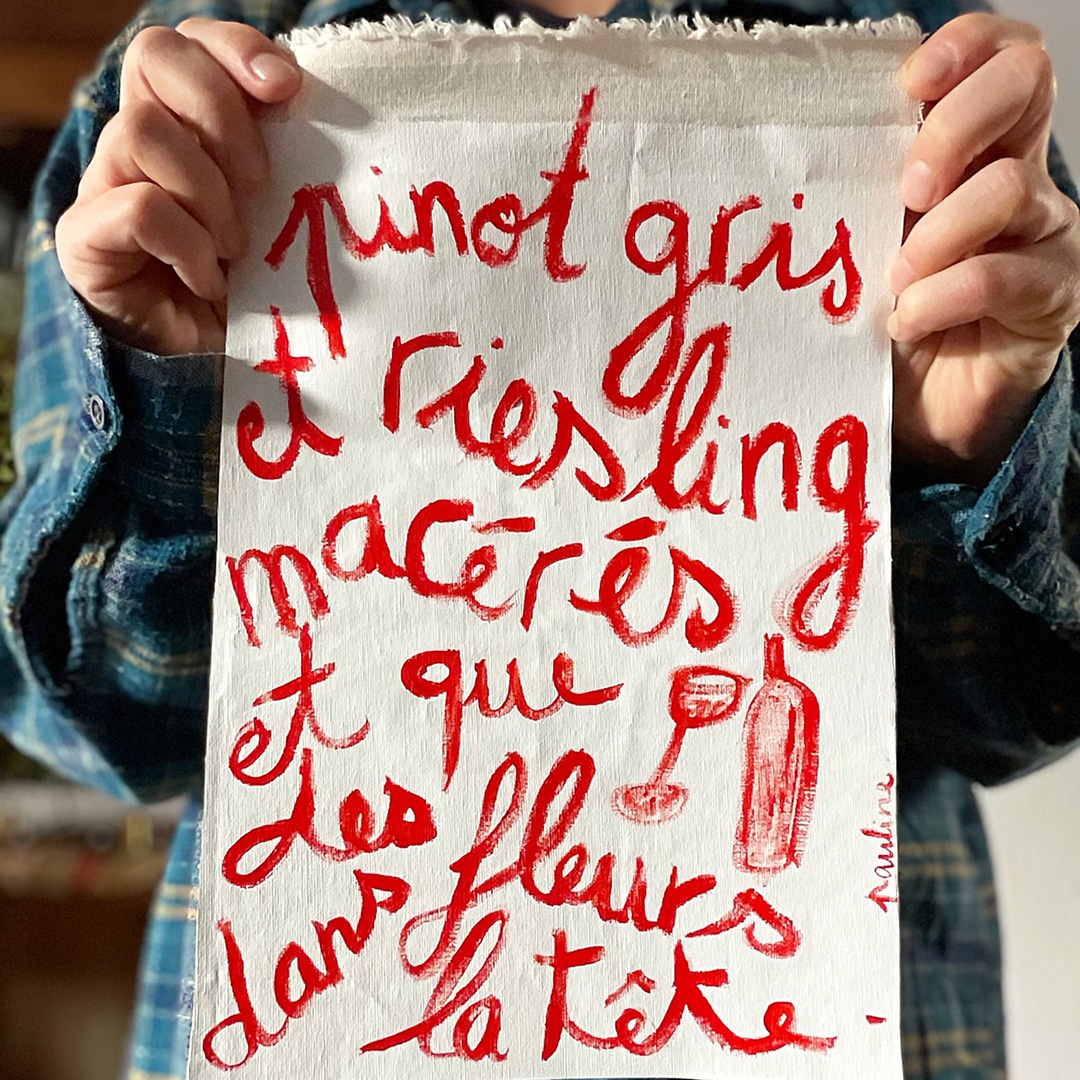 pinot gris
et riesling
macérés
et que
des fleurs
dans la tête.
pauline.